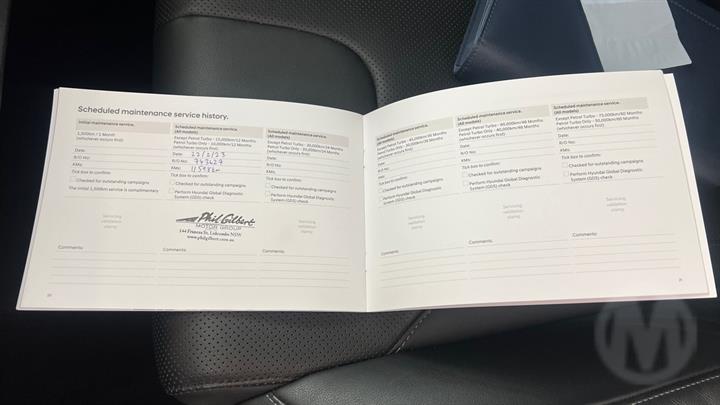 Scheduled maintenance service history.
Initial maintenance service.
1,500km / 1 Month
(whichever occurs first)
Date:
R/O No:
KMs:
Tick box to confirm:
Checked for outstanding campaigns
The initial 1,500km service is complimentary
Comments:
Scheduled maintenance service.
(All models)
Except Petrol Turbo - 15,000km/12 Months
Petrol Turbo Only - 10,000km/12 Months
(whichever occurs first)
Date: 22/2/23
R/O No: 743627
KMs:
Tick box to confirm:
Checked for outstanding campaigns
Perform Hyundai Global Diagnostic
System (GDS) check
Phil Gilbert
MOTOR GROUP
144 Frances St, Lidcombe NSW
www.philgilbert.com.au
Comments:
Scheduled maintenance service.
(All models)
Except Petrol Turbo - 30,000km/24 Months
Petrol Turbo Only - 20,000km/24 Months
(whichever occurs first)
Date:
R/O No:
KMs:
Tick box to confirm:
Checked for outstanding campaigns
Perform Hyundai Global Diagnostic
System (GDS) check
Servicing
validation
stamp
Comments:
20
Scheduled maintenance service.
(All models)
Except Petrol Turbo - 45,000km/36 Months
Petrol Turbo Only - 30,000km/36 Months
(whichever occurs first)
Date:
R/O No:
KMs:
Tick box to confirm:
Checked for outstanding campaigns
Perform Hyundai Global Diagnostic
System (GDS) check
Servicing
validation
stamp
Comments:
Scheduled maintenance service.
(All models)
Except Petrol Turbo - 60,000km/48 Months
Petrol Turbo Only - 40,000km/48 Months
(whichever occurs first)
Date:
R/O No:
KMs:
Tick box to confirm:
Checked for outstanding campaigns
Perform Hyundai Global Diagnostic
System (GDS) check
Servicing
validation
stamp
Comments:
Scheduled maintenance service.
(All models)
Except Petrol Turbo - 75,000km/60 Months
Petrol Turbo Only - 50,000km/60 Months
(whichever occurs first)
Date:
R/O No:
KMs:
Tick box to confirm:
Checked for outstanding campaigns
Perform Hyundai Global Diagnostic
System (GDS) check
Servicing
validation
stamp
Comments:
21
M